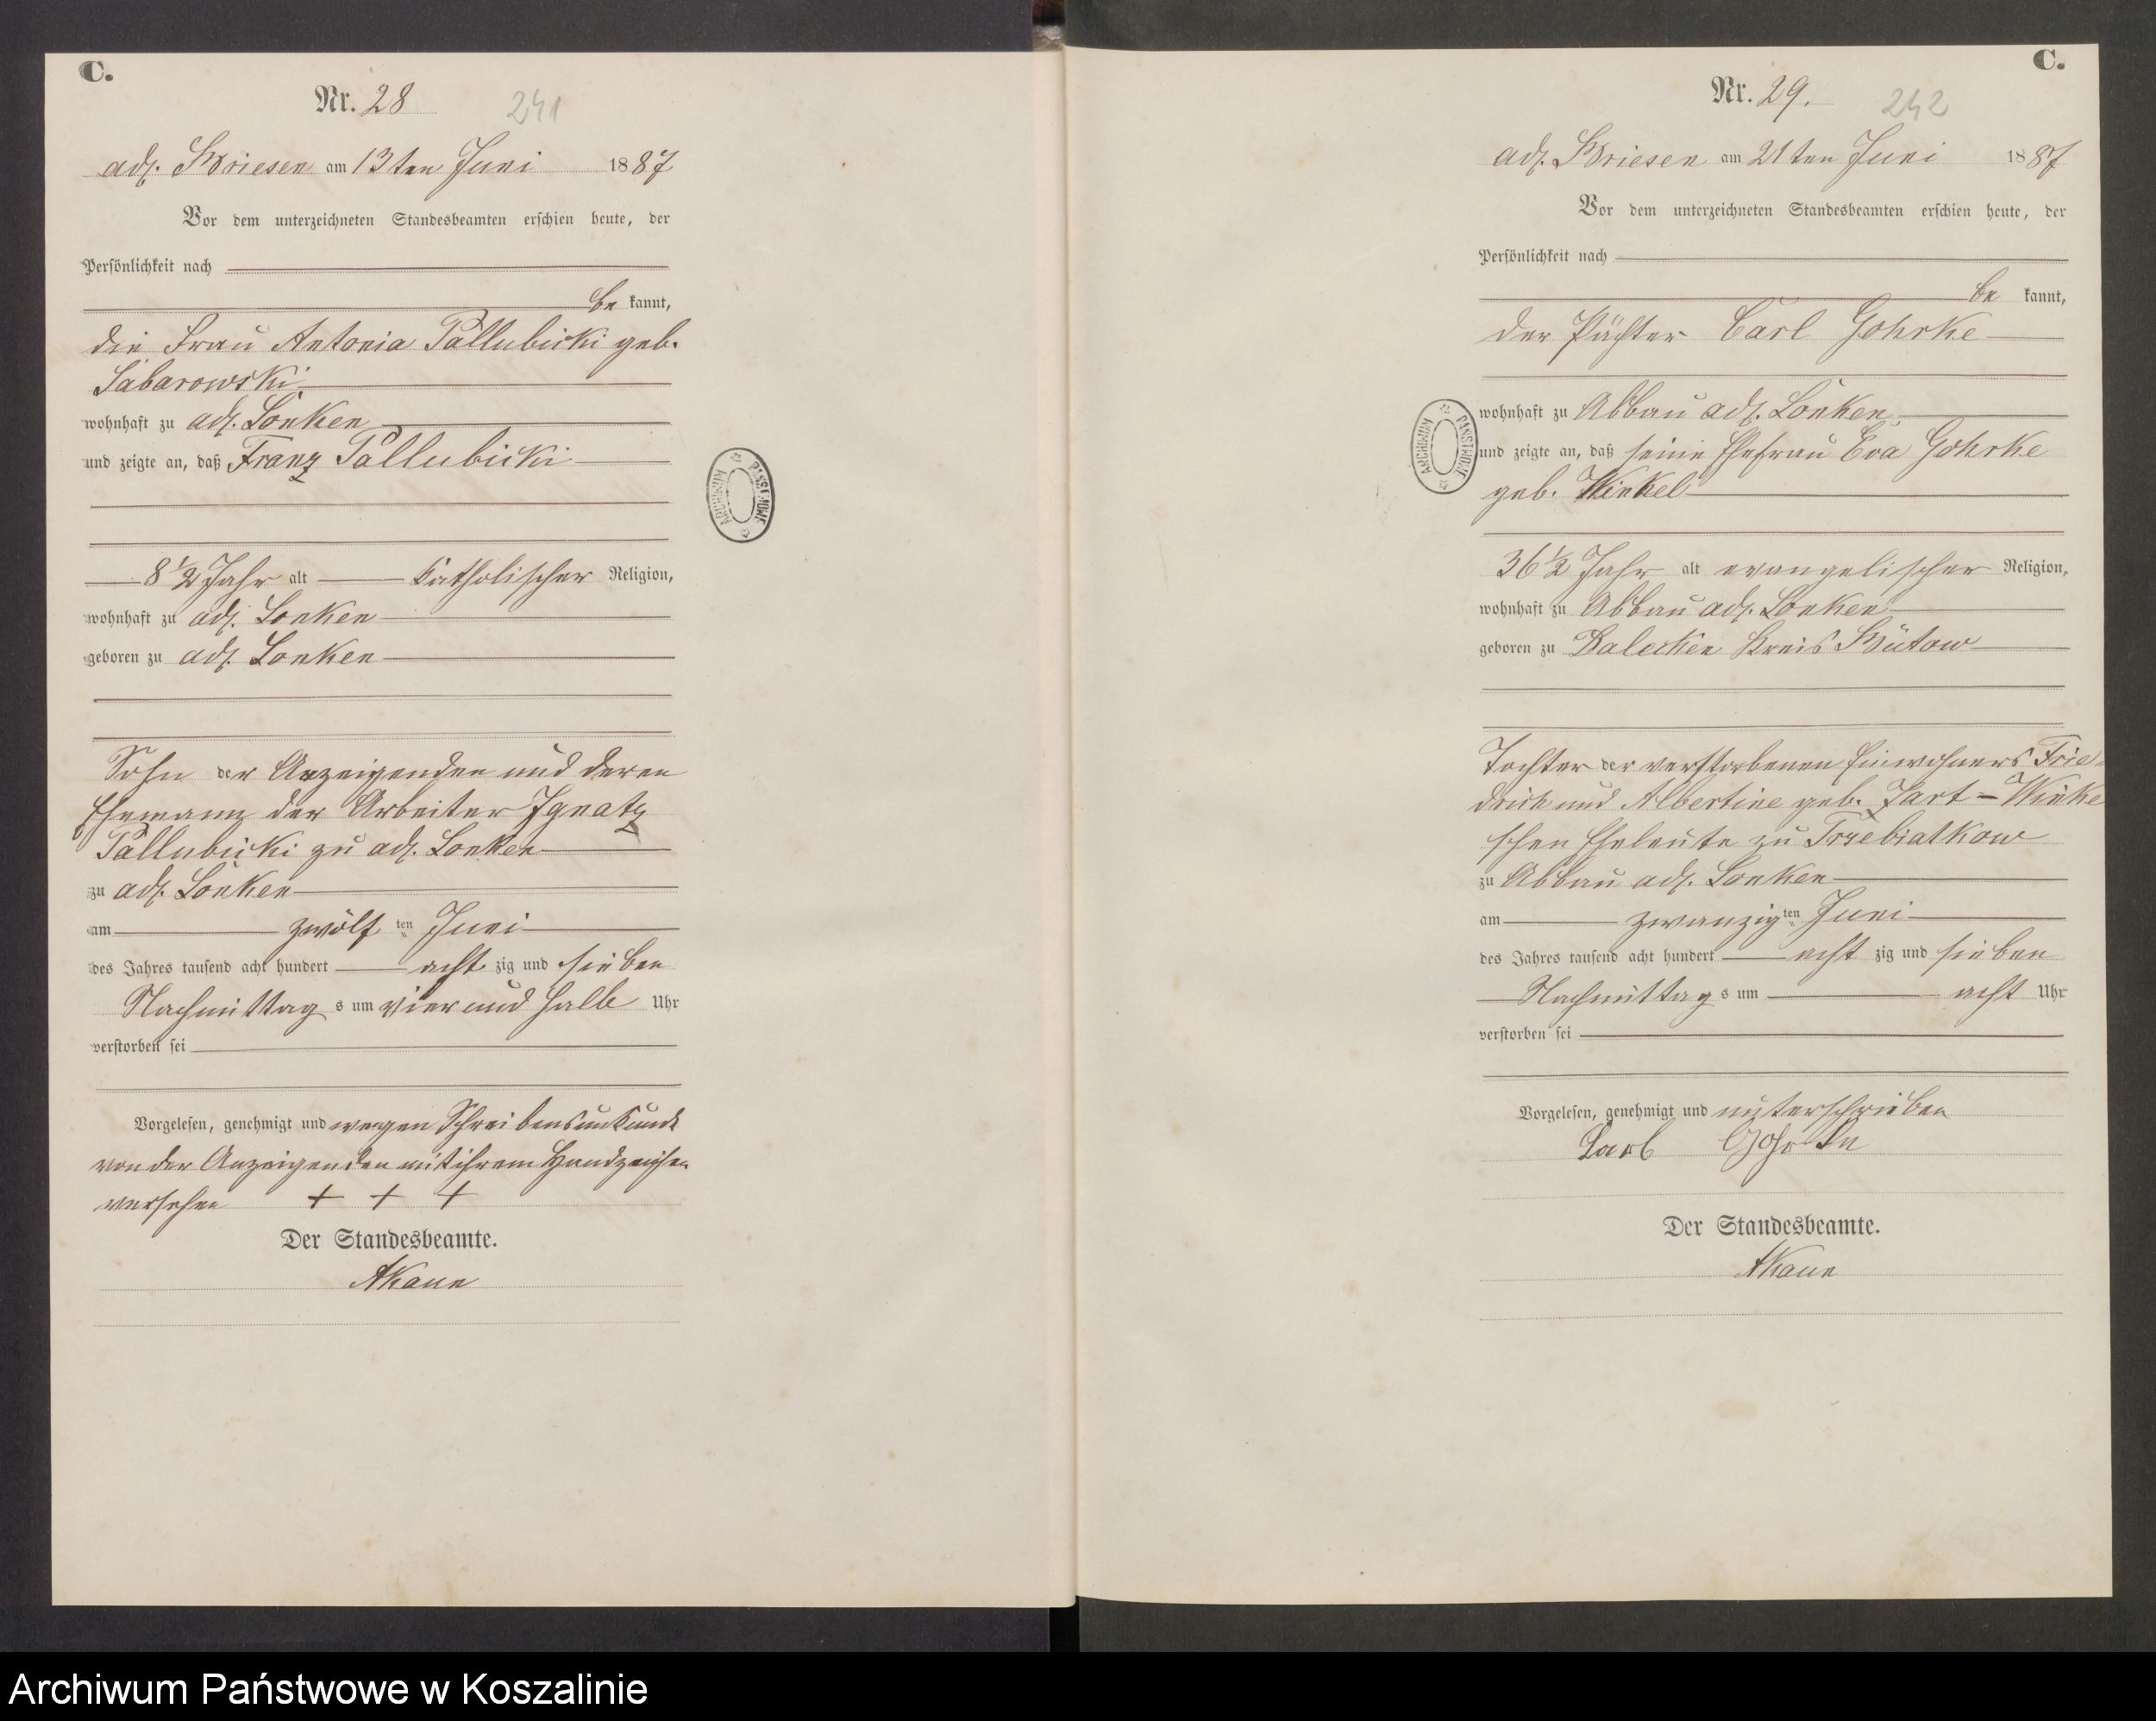 C.
Nr. 28 241
adl. Briesen am 13ten Juni 1887
Vor dem unterzeichneten Standesbeamten erschien heute, der
Persönlichkeit nach
be kannt,
die Frau Antonia Pallubicki geb.
Sabarowski
wohnhaft zu adl. Lonken
und zeigte an, daß Franz Pallubicki
8 1/2 Jahr alt katholischer Religion,
wohnhaft zu adl. Lonken
geboren zu adl. Lonken
Sohn der Anzeigenden und deren
Ehemann der Arbeiter Ignatz
Pallubicki zu adl. Lonken
zu adl. Lonken
am zwölf ten Juni
des Jahres tausend acht hundert acht zig und sieben
Nachmittag s um vier und halb Uhr
verstorben sei
Vorgelesen, genehmigt und wegen Schreibensunkunde
von der Anzeigenden mit ihrem Handzeichen
versehen + + +
Der Standesbeamte.
ARCHIWUM PAŃSTWOWE
C.
Nr. 29. 242
adl. Briesen am 21ten Juni 1887
Vor dem unterzeichneten Standesbeamten erschien heute, der
Persönlichkeit nach
be kannt,
der Pächter Carl Gohrke
wohnhaft zu Abbau adl. Lonken
und zeigte an, daß seine Ehefrau Eva Gohrke
geb. Winkel
36 1/2 Jahr alt evangelischer Religion,
wohnhaft zu Abbau adl. Lonken
geboren zu Kreis Bütow
Tochter der verstorbenen Einwohners Frie-
drich und Albertine geb. Jart - Winke
schen Eheleute zu Trzebiatkow
zu Abbau adl. Lonken
am zwanzig ten Juni
des Jahres tausend acht hundert acht zig und sieben
Nachmittag s um acht Uhr
verstorben sei
Vorgelesen, genehmigt und unterschrieben
Carl Gohrke
Der Standesbeamte.
ARCHIWUM PAŃSTWOWE
Archiwum Państwowe w Koszalinie